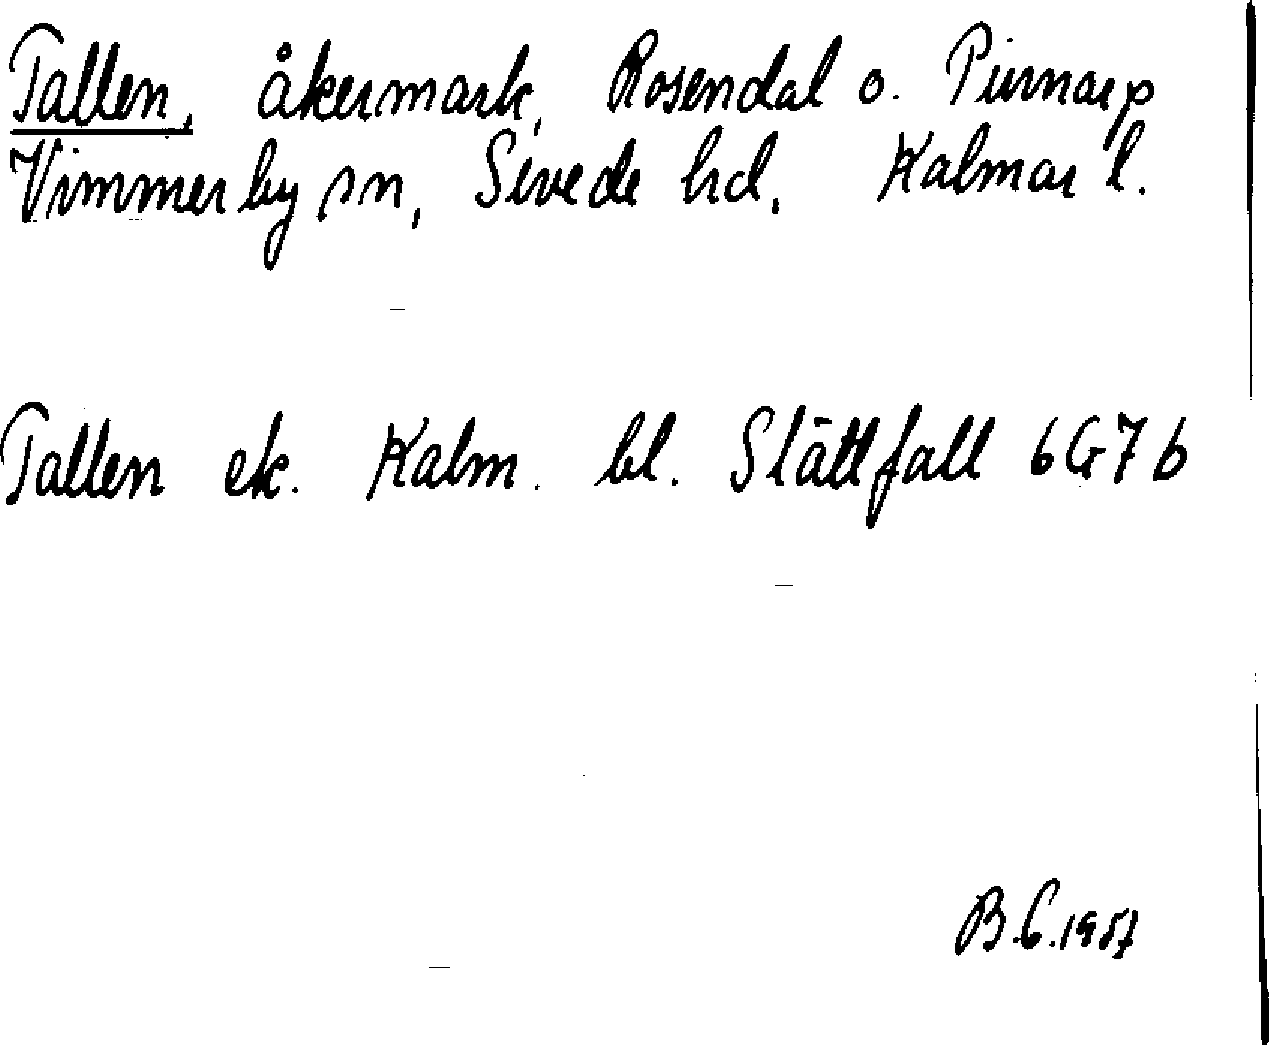 Tallen, åkermark, Rosendal o. Pirnarp
Vimmerby sn, Sevede hd, Kalmar l.
Tallen ek. Kalm. bl. Slättfall 6G7b
B.C. 1957